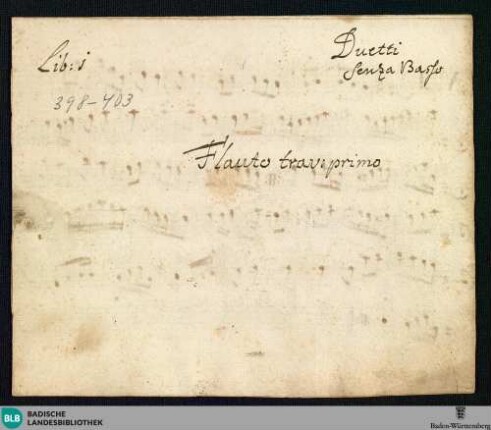 Lib: 1
Duetti
Senza Basso
398-403
Flauto trav: primo
BLB BADISCHE
LANDESBIBLIOTHEK
Baden-Württemberg